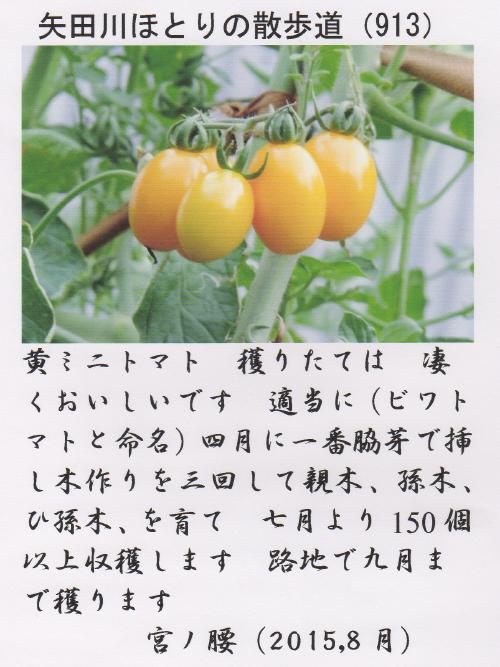 矢田川ほとりの散歩道（913）
黄ミニトマト　穫りたては　凄
くおいしいです　適当に（ビワト
マトと命名）四月に一番脇芽で挿
し木作りを三回して親木、孫木、
ひ孫木、を育て　七月より150個
以上収穫します　路地で九月ま
で穫ります
宮ノ腰（2015,8月）